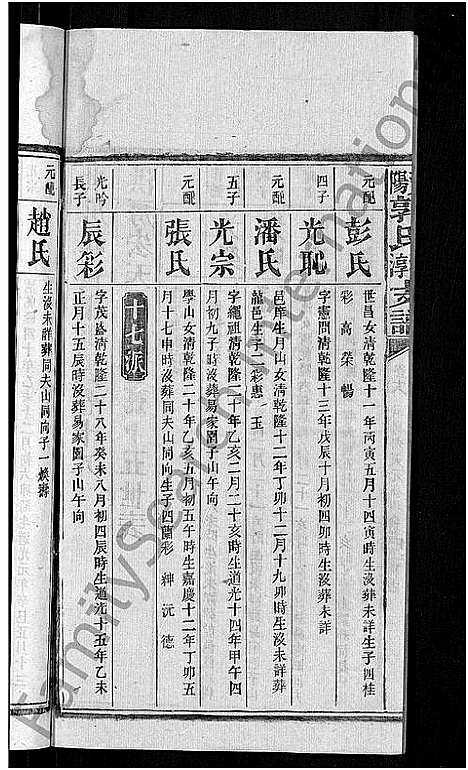 陽郭氏淳支譜
元配
彭氏
世昌女清乾隆十一年丙寅五月十四寅時生沒葬未詳生子四桂
彩 高 榮 暢
四子
光恥
字憲問清乾隆十三年戊辰十月初四卯時生沒葬未詳
元配
潘氏
邑庠生月山女清乾隆十二年丁卯十二月十九卯時生沒未詳葬
龍邑生子二彩惠 玉
五子
光宗
字繩祖清乾隆二十年乙亥二月二十亥時生道光十四年甲午四
月初九子時沒葬易家園子山午向
元配
張氏
學山女清乾隆二十年乙亥五月初五午時生嘉慶十二年丁卯五
月十七申時沒葬同夫山同向生子四蘭彩 紳 沅 德
光吟
長子
辰彩
字茂盛清乾隆二十八年癸未八月初四辰時生道光十五年乙未
正月十五辰時沒葬易家園子山午向
元配
趙氏
生沒未詳葬同夫山同向子一煥壽
FamilySearch International